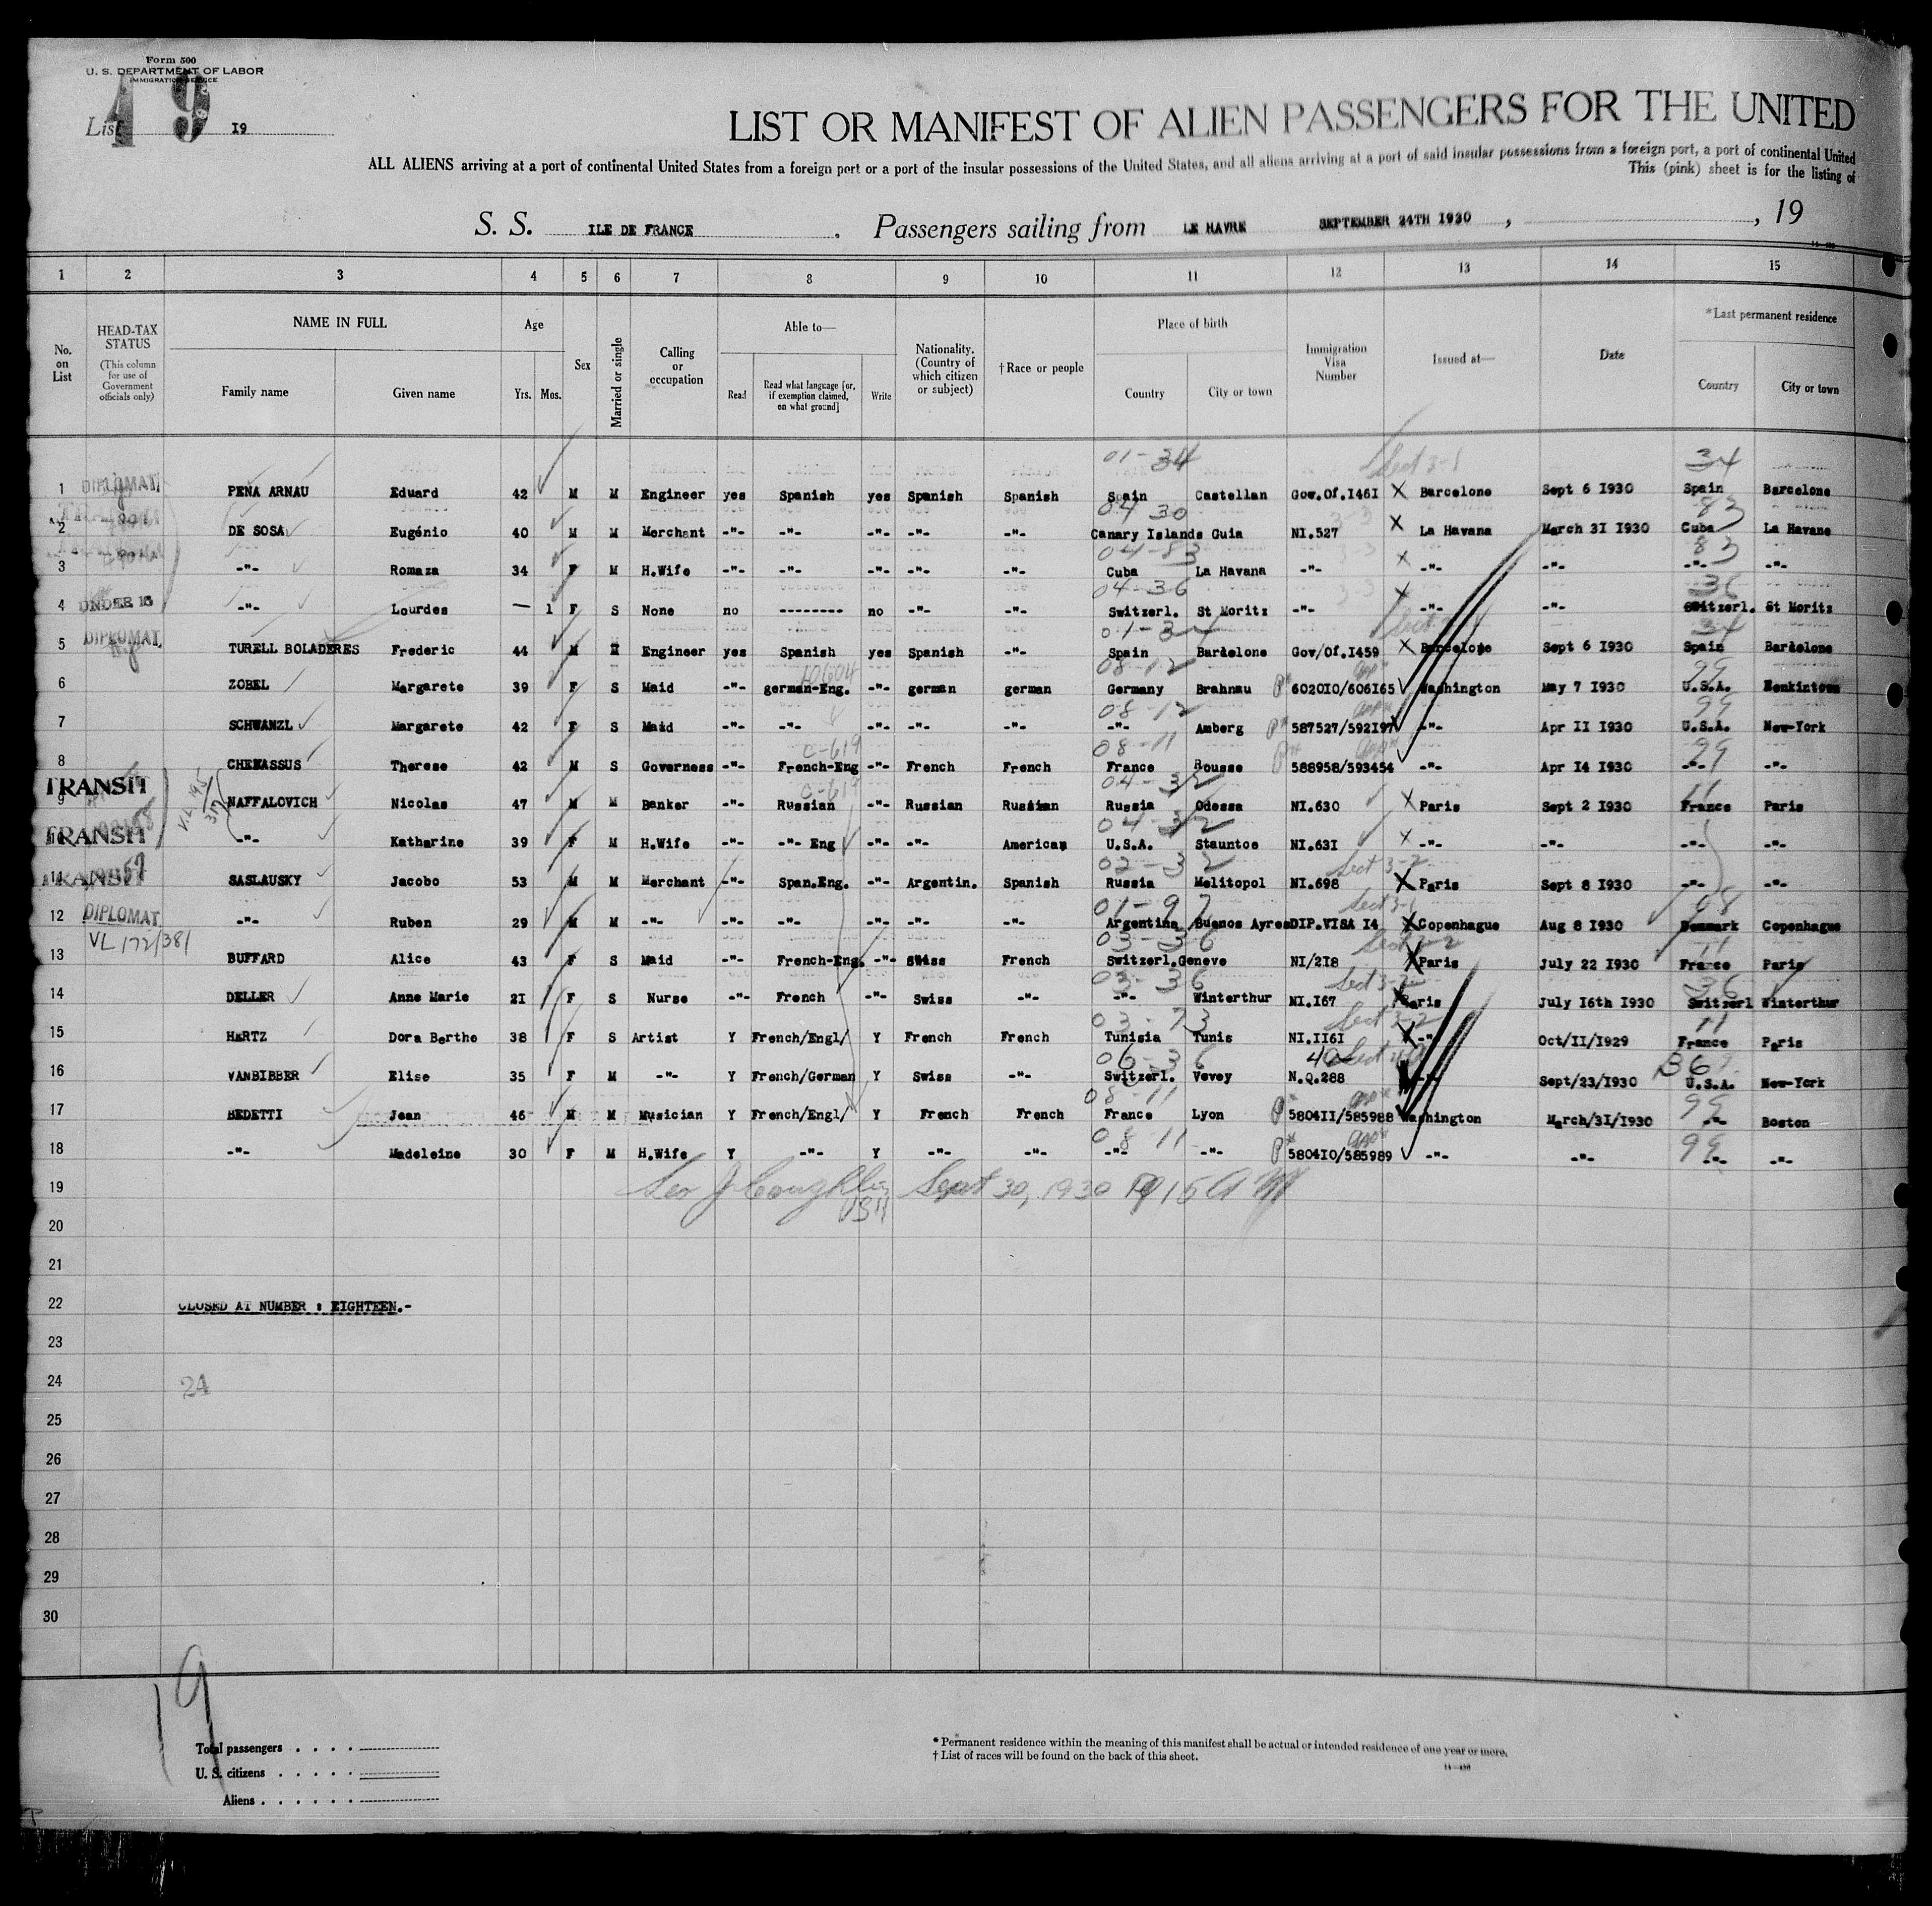 Form 500
U. S. DEPARTMENT OF LABOR
IMMIGRATION SERVICE
49
List 19
LIST OR MANIFEST OF ALIEN PASSENGERS FOR THE UNITED
ALL ALIENS arriving at a port of continental United States from a foreign port or a port of the insular possessions of the United States, and all aliens arriving at a port of said insular possessions from a foreign port, a port of continental United
This (pink) sheet is for the listing of
S. S. ILE DE FRANCE . Passengers sailing from LE HAVRE SEPTEMBER 24TH 1930 , , 19
1 2 3 4 5 6 7 8 9 10 11 12 13 14 15
No. on List
HEAD-TAX STATUS (This column for use of Government officials only)
NAME IN FULL Family name Given name
Age Yrs. Mos.
Sex
Married or single
Calling or occupation
Able to— Read Read what language [or, if exemption claimed, on what ground] Write
Nationality. (Country of which citizen or subject)
†Race or people
Place of birth Country City or town
Immigration Visa Number
Issued at—
Date
*Last permanent residence Country City or town
01-34 Sect 3-1 34
1 DIPLOMAT. PENA ARNAU Eduard 42 M M Engineer yes Spanish yes Spanish Spanish Spain Castellan Gov.Of.I46I X Barcelone Sept 6 I930 Spain Barcelone
04 30 3-3 83
2 DE SOSA Eugénio 40 M M Merchant -"- -"- -"- -"- -"- Canary Islands Guia NI.527 X La Havana March 3I I930 Cuba La Havane
04-83 3-3 83
3 -"- Romaza 34 F M H.Wife -"- -"- -"- -"- -"- Cuba La Havana -"- X -"- -"- -"- -"-
04-36 3-3 36
4 UNDER 16 -"- Lourdes — 1 F S None no -------- no -"- -"- Switzerl. St Moritz -"- X -"- -"- Switzerl. St Moritz
01-34 34
5 DIPLOMAT. TURELL BOLADERES Frederic 44 M M Engineer yes Spanish yes Spanish -"- Spain Barcelone Gov/Of.I459 X Barcelone Sept 6 I930 Spain Barcelone
08-12 99
6 ZOBEL Margarete 39 F S Maid -"- german-Eng. -"- german german Germany Brahnau 6020I0/606I65 Washington May 7 I930 U.S.A.
08-12 99
7 SCHWANZL Margarete 42 F S Maid -"- -"- -"- -"- -"- -"- Amberg 587527/592I97 -"- Apr II I930 U.S.A. New-York
C-619 08-11 99
8 CHENASSUS Therese 42 M S Governess -"- French-Eng -"- French French France Rousse 588958/593454 -"- Apr I4 I930 -"- -"-
C-619 04-32 11
9 TRANSIT NAFFALOVICH Nicolas 47 M M Banker -"- Russian -"- Russian Russian Russia Odessa NI.630 X Paris Sept 2 I930 France Paris
04-32
10 TRANSIT -"- Katharine 39 F M H.Wife -"- -"- Eng -"- -"- American U.S.A. Stauntoe NI.63I X -"- -"- -"- -"-
02-32 Sect 3-2
11 TRANSIT SASLAUSKY Jacobo 53 M M Merchant -"- Span.Eng. -"- Argentin. Spanish Russia Melitopol NI.698 X Paris Sept 8 I930 -"- -"-
01-92 Sect 3-1 08
12 DIPLOMAT -"- Ruben 29 M M -"- -"- -"- -"- -"- -"- Argentina Buenos Ayres DIP.VISA I4 X Copenhague Aug 8 I930 Denmark Copenhague
VL 172/381 03-36 Sect 3-2 11
13 BUFFARD Alice 43 F S Maid -"- French-Eng. -"- Swiss French Switzerl. Geneve NI/2I8 X Paris July 22 I930 France Paris
03-36 Sect 3-2 36
14 DELLER Anne Marie 2I F S Nurse -"- French -"- Swiss -"- -"- Winterthur NI.I67 X Paris July I6th I930 Switzerl Winterthur
03-73 Sect 3-2 11
15 HERTZ Dora Berthe 38 F S Artist Y French/Engl/ Y French French Tunisia Tunis NI.II6I X -"- Oct/II/I929 France Paris
06-36
16 VANBIBBER Elise 35 F M -"- Y French/German Y Swiss -"- Switzerl. Vevey N.Q.288 -"- Sept/23/I930 U.S.A. New-York
08-11 99
17 BEDETTI Jean 46 M M Musician Y French/Engl/ Y French French France Lyon 5804II/585988 Washington March/3I/I930 -"- Boston
08-11 99
18 -"- Madeleine 30 F M H.Wife Y -"- Y -"- -"- -"- -"- 5804I0/585989 -"- -"- -"- -"-
19 Leo J Coughlin Sept 30, 1930
20
21
22 CLOSED AT NUMBER : EIGHTEEN.-
23
24 24
25
26
27
28
29
30
19
Total passengers . . . .
U. S. citizens . . . . .
Aliens . . . . . .
* Permanent residence within the meaning of this manifest shall be actual or intended residence of one year or more.
† List of races will be found on the back of this sheet.